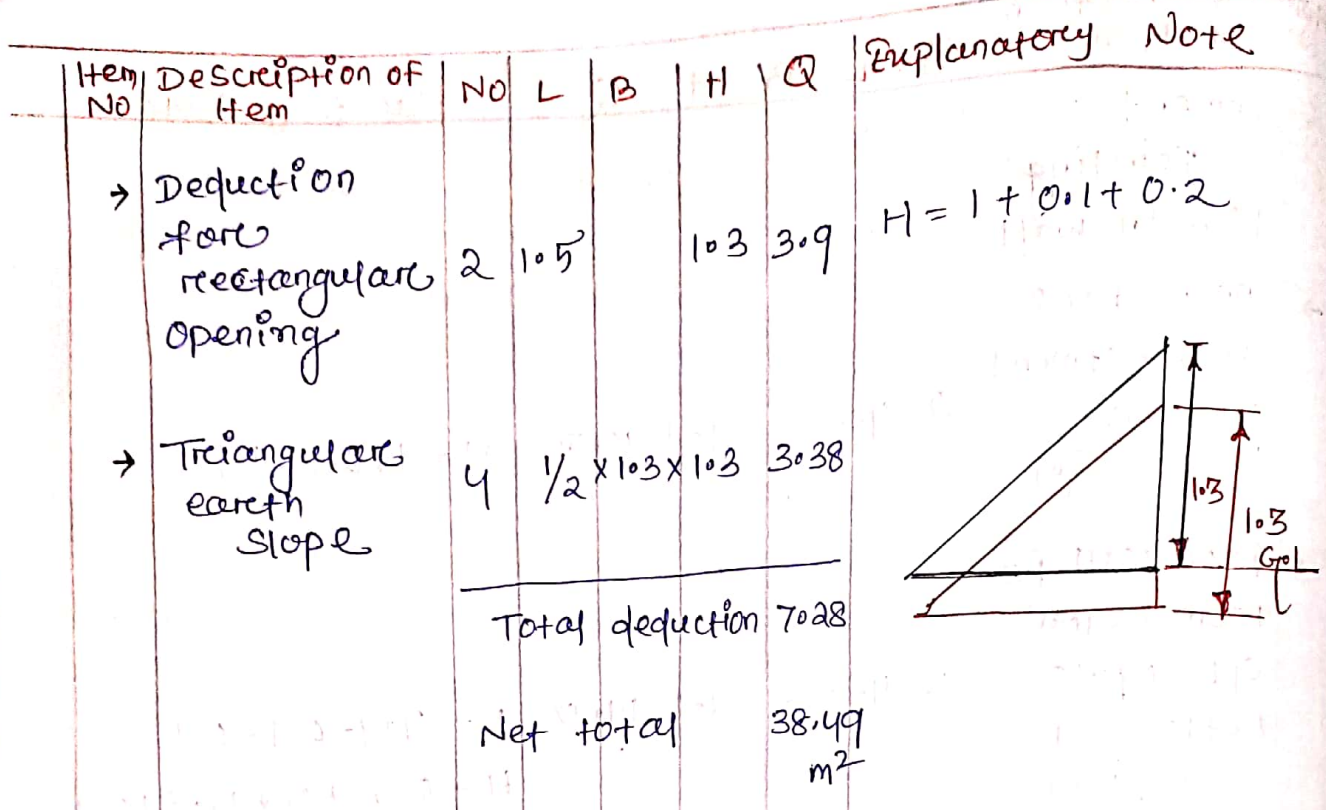 Item No | Description of Item | No | L | B | H | Q | Explanatory Note
→ Deduction
for
rectangular
opening | 2 | 1.5 | | 1.3 | 3.9 | H = 1 + 0.1 + 0.2
→ Triangular
earth
slope | 4 | 1/2 × 1.3 × 1.3 | 3.38
1.3
1.3
G.L
Total deduction 7.28
Net total 38.49
m²